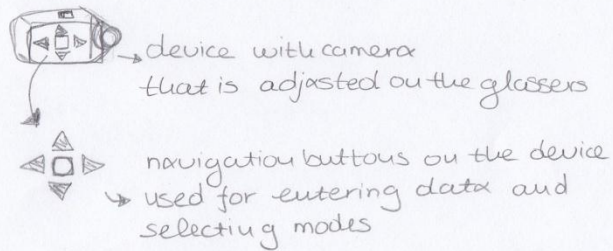 device with camera
that is adjasted on the glassers
navigation buttons on the device
used for entering data and
selecting modes